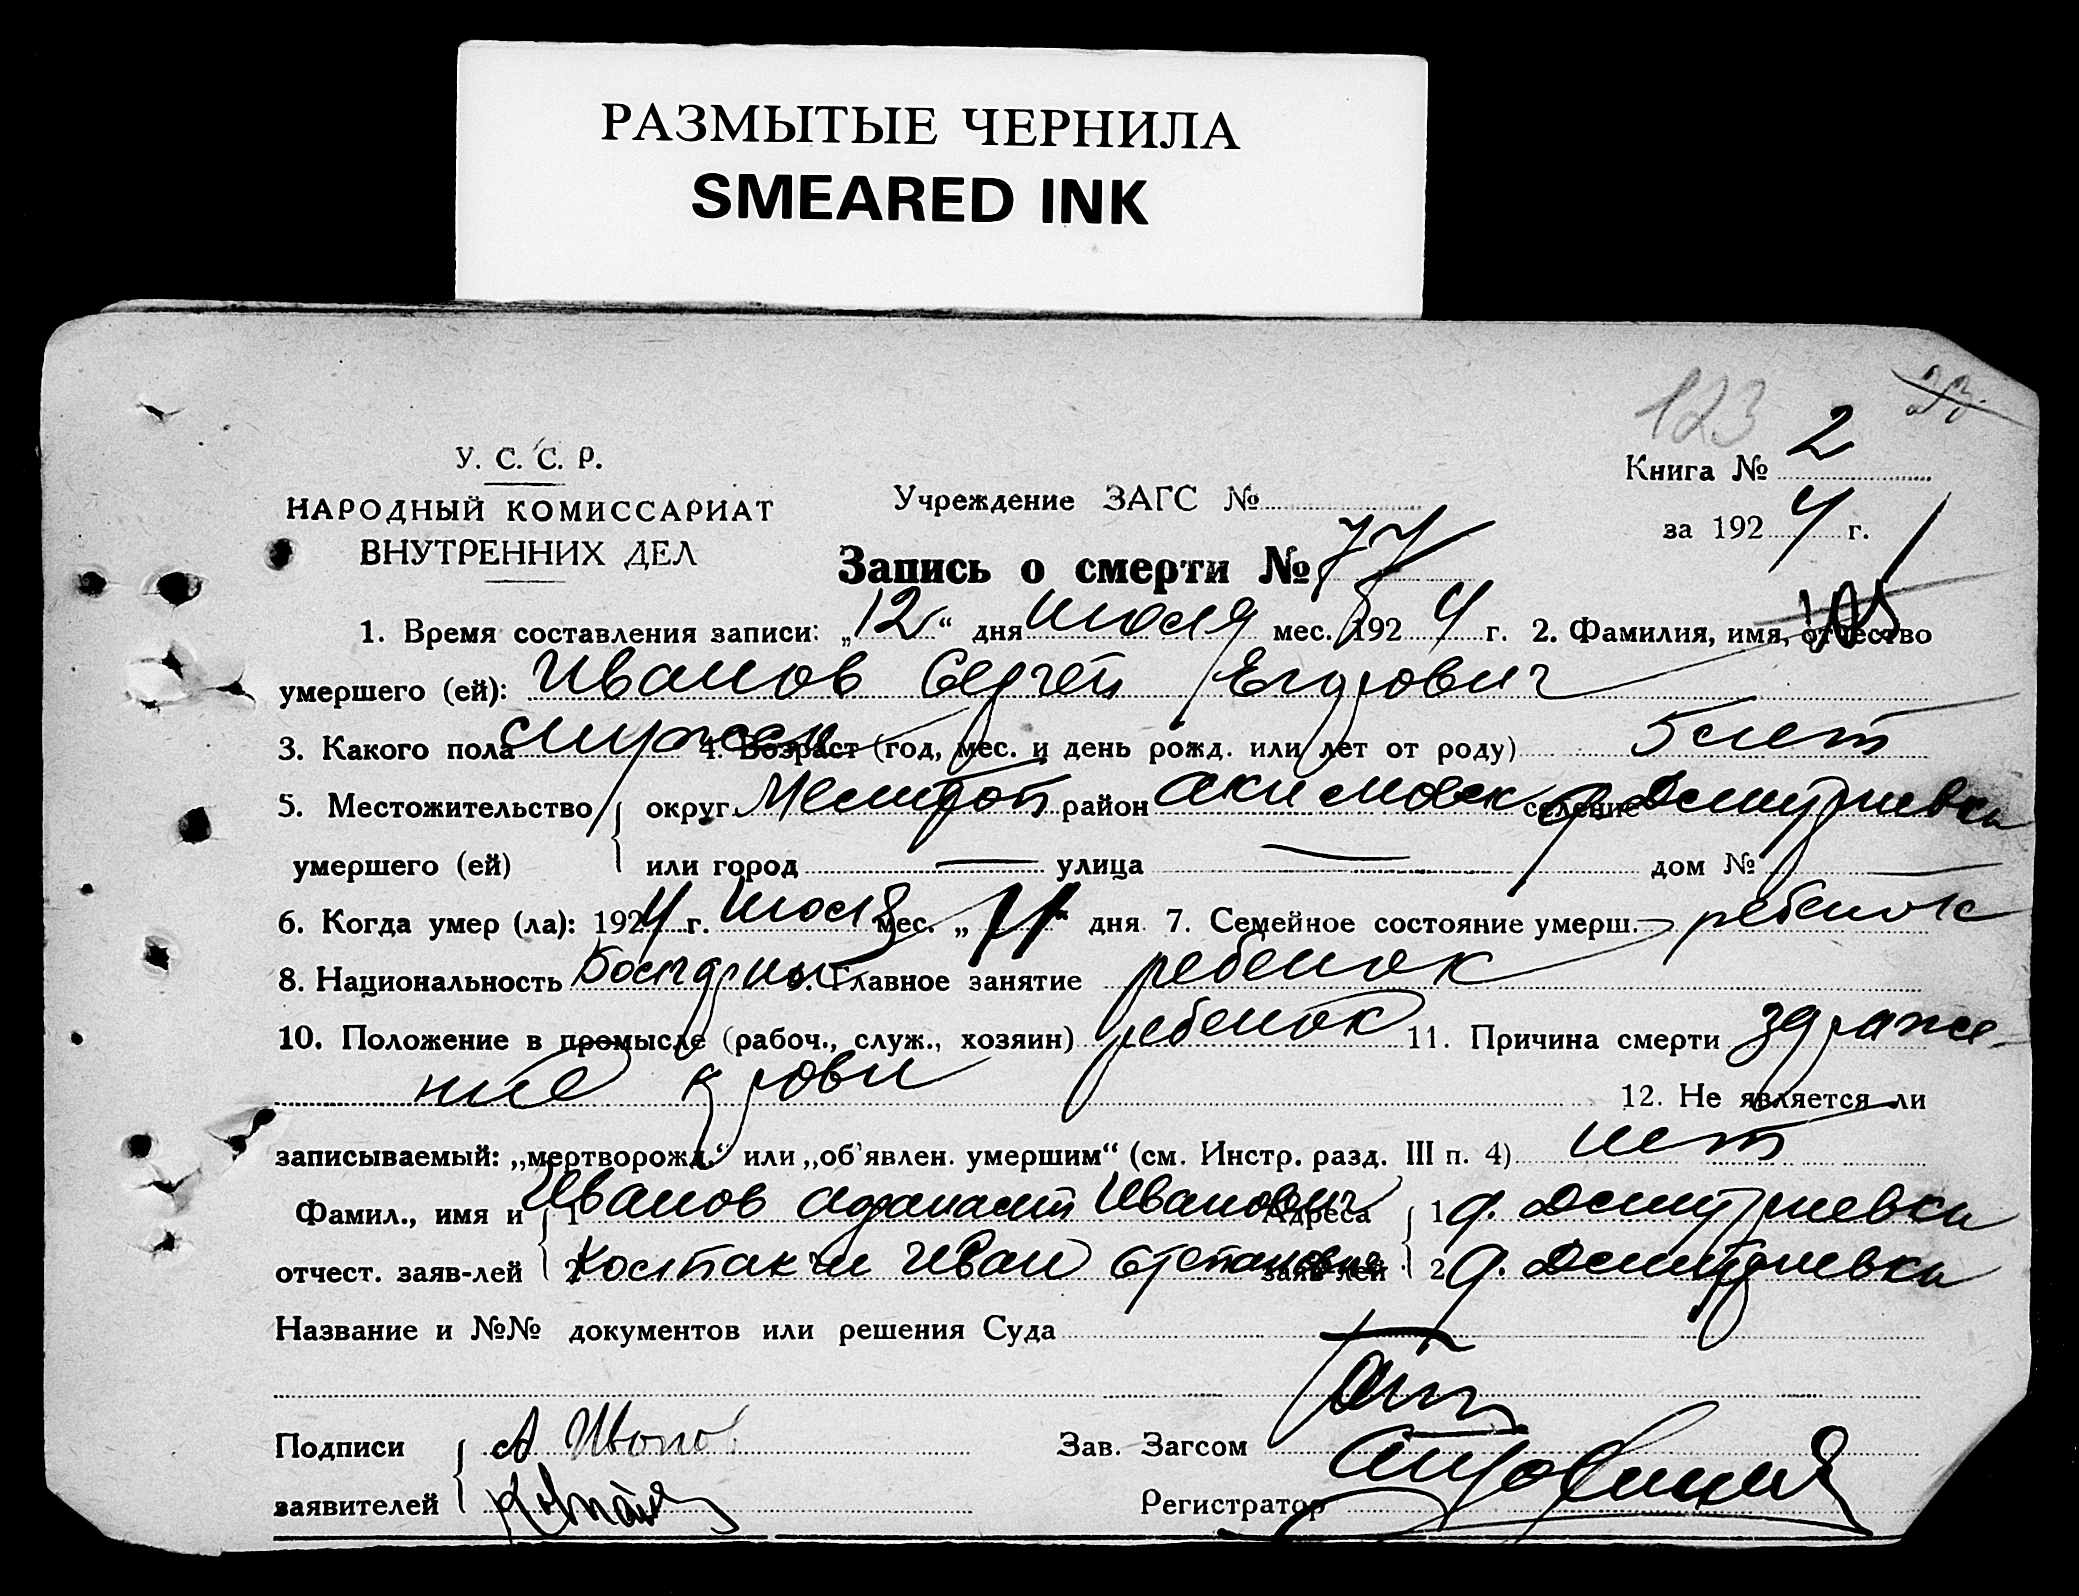 РАЗМЫТЫЕ ЧЕРНИЛА
SMEARED INK
123 23
У. С. С. Р.
НАРОДНЫЙ КОМИССАРИАТ
ВНУТРЕННИХ ДЕЛ
Учреждение ЗАГС №
Книга № 2
за 1924 г.
Запись о смерти № 77
1. Время составления записи: „12“ дня июля мес. 1924 г. 2. Фамилия, имя, отчество
умершего (ей): Иванов Сергей Егорович
3. Какого пола 4. Возраст (год, мес. и день рожд. или лет от роду) 5 лет
5. Местожительство округ Мелитоп район Акимовск селение д. Дмитриевка
умершего (ей) или город — улица — дом № —
6. Когда умер (ла): 1924 г. июля мес. „11 дня 7. Семейное состояние умерш. ребенок
8. Национальность Болгарин 9. Главное занятие ребенок
10. Положение в промысле (рабоч., служ., хозяин) ребенок 11. Причина смерти зараже-
ние крови 12. Не является ли
записываемый: „мертворожд.“ или „об'явлен. умершим“ (см. Инстр. разд. III п. 4) нет
Фамил., имя и 1 Иванов Афанасий Иванович Адреса 1 д. Дмитриевка
отчест. заяв-лей 2 Костакчи Иван заяв-лей 2 д. Дмитриевка
Название и №№ документов или решения Суда
Подписи А Ивано Зав. Загсом
заявителей Регистратор